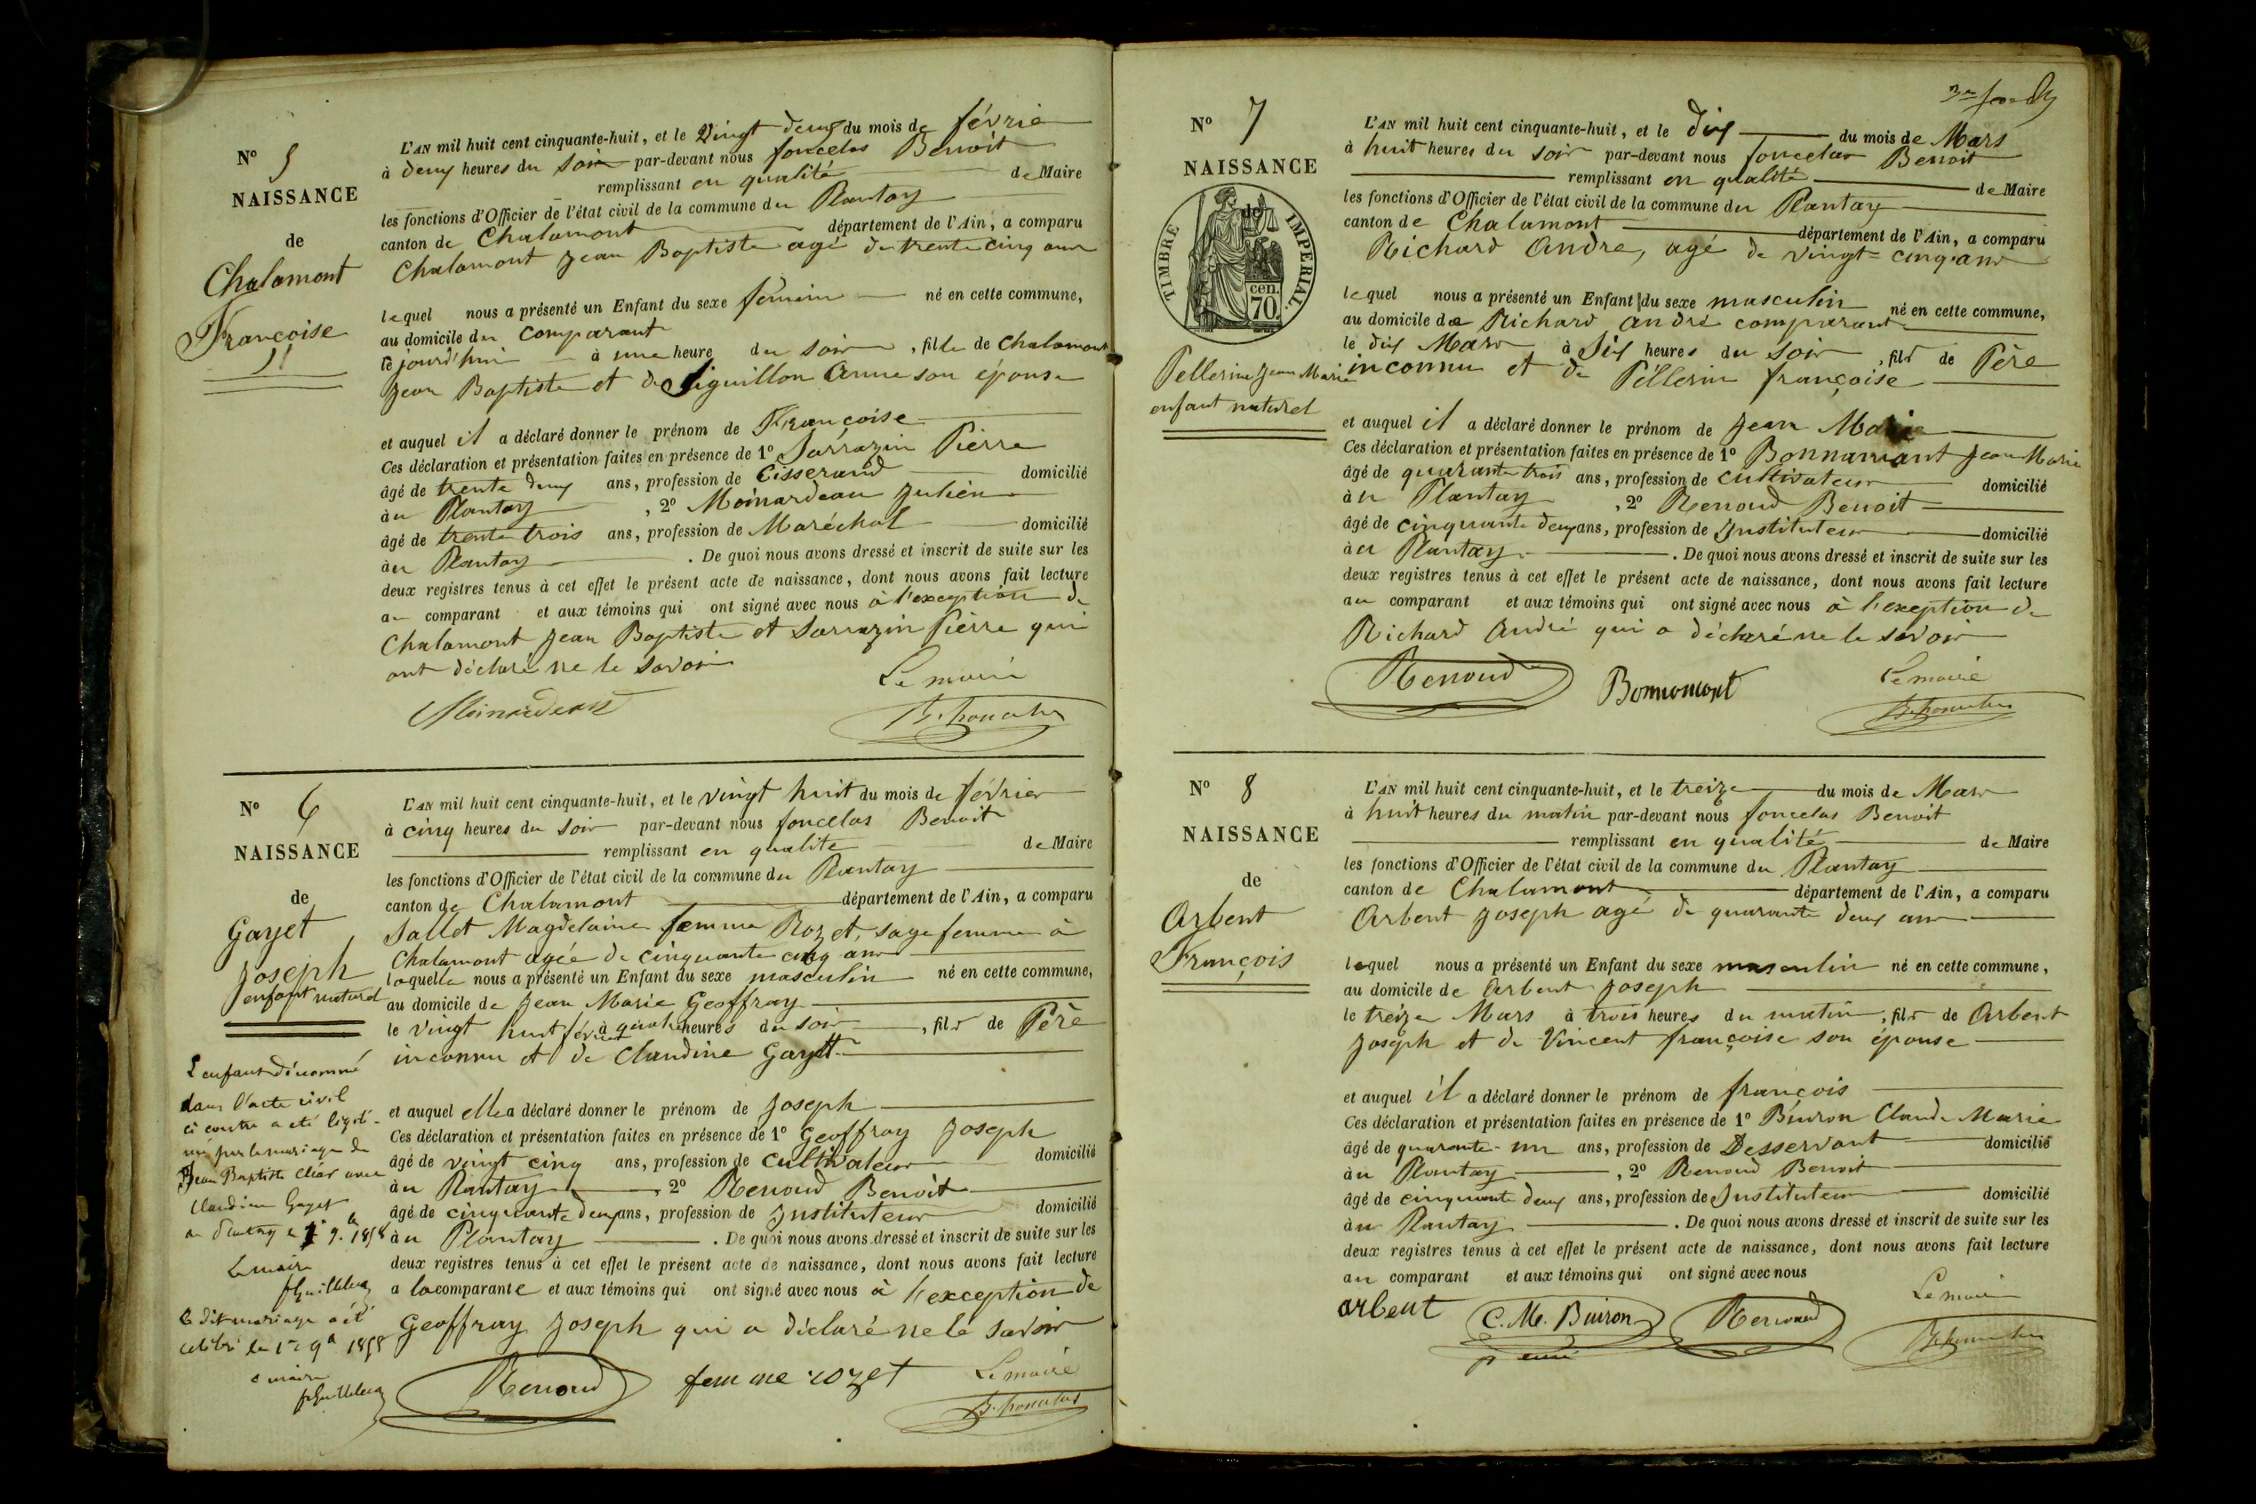 N° 5
NAISSANCE
de
Chalamont
Françoise
L'AN mil huit cent cinquante-huit, et le Vingt deux du mois de févrie
à deux heures du soir par-devant nous foncelas Benoit
remplissant en qualité de Maire
les fonctions d'Officier de l'état civil de la commune du Plantay
canton de Chalamont département de l'Ain, a comparu
Chalamont Jean Baptiste agé de trente cinq ans
lequel nous a présenté un Enfant du sexe féminin né en cette commune,
au domicile du comparant
le jourd'hui à une heure du soir, fille de Chalamont
Jean Baptiste et de Siguillon Anne son épouse
et auquel il a déclaré donner le prénom de Françoise
Ces déclaration et présentation faites en présence de 1° Sarrazin Pierre
âgé de trente deux ans, profession de Tisserand domicilié
à u Plantay, 2° Moinardeau Julien
âgé de trente trois ans, profession de Maréchal domicilié
à u Plantay. De quoi nous avons dressé et inscrit de suite sur les
deux registres tenus à cet effet le présent acte de naissance, dont nous avons fait lecture
au comparant et aux témoins qui ont signé avec nous à l'exception de
Chalamont Jean Baptiste et Sarrazin Pierre qui
ont déclaré ne le savoir
Le maire
Moinardeau
N° 6
NAISSANCE
de
Gayet
Joseph
enfant naturel
L'enfant dénommé
dans l'acte civil
ci contre a été légiti-
mé par le mariage de
Jean Baptiste Cléar avec
Claudine Gayet
au Plantay le 1er 9bre 1858
Le maire
Le dit mariage a été
célébré le 1er 9bre 1858
Le maire
L'AN mil huit cent cinquante-huit, et le vingt huit du mois de février
à cinq heures du soir par-devant nous foncelas Benoit
remplissant en qualité de Maire
les fonctions d'Officier de l'état civil de la commune du Plantay
canton de Chalamont département de l'Ain, a comparu
Sallet Magdelaine femme Rozet, sage femme à
Chalamont agée de cinquante cinq ans
laquelle nous a présenté un Enfant du sexe masculin né en cette commune,
au domicile de Jean Marie Geoffray
le vingt huit février à quatre heures du soir, fils de Père
inconnu et de Claudine Gayet
et auquel elle a déclaré donner le prénom de Joseph
Ces déclaration et présentation faites en présence de 1° Geoffray Joseph
âgé de vingt cinq ans, profession de cultivateur domicilié
à u Plantay, 2° Renoud Benoit
âgé de cinquante deux ans, profession de Instituteur domicilié
à u Plantay. De quoi nous avons dressé et inscrit de suite sur les
deux registres tenus à cet effet le présent acte de naissance, dont nous avons fait lecture
a la comparante et aux témoins qui ont signé avec nous à l'exception de
Geoffray Joseph qui a déclaré ne le savoir
Renoud femme rozet Le maire
N° 7
NAISSANCE
de
TIMBRE IMPERIAL.
70 cen.
Pellerin Jean Marie
enfant naturel
L'AN mil huit cent cinquante-huit, et le dix du mois de Mars
à huit heures du soir par-devant nous foncelas Benoit
remplissant en qualité de Maire
les fonctions d'Officier de l'état civil de la commune du Plantay
canton de Chalamont département de l'Ain, a comparu
Richard André, agé de vingt-cinq ans
lequel nous a présenté un Enfant du sexe masculin né en cette commune,
au domicile de Richard andré comparant
le dix Mars à Six heures du soir, fils de Père
inconnu et de Pellerin françoise
et auquel il a déclaré donner le prénom de Jean Marie
Ces déclaration et présentation faites en présence de 1° Bonnamant Jean Marie
âgé de quarante trois ans, profession de cultivateur domicilié
à u Plantay, 2° Renoud Benoit
âgé de cinquante deux ans, profession de Instituteur domicilié
à u Plantay. De quoi nous avons dressé et inscrit de suite sur les
deux registres tenus à cet effet le présent acte de naissance, dont nous avons fait lecture
au comparant et aux témoins qui ont signé avec nous à l'exception de
Richard André qui a déclaré ne le savoir
Renoud Bonnamont Le maire
N° 8
NAISSANCE
de
Arbent
François
L'AN mil huit cent cinquante-huit, et le treize du mois de Mars
à huit heures du matin par-devant nous foncelas Benoit
remplissant en qualité de Maire
les fonctions d'Officier de l'état civil de la commune du Plantay
canton de Chalamont département de l'Ain, a comparu
Arbent Joseph agé de quarante deux ans
lequel nous a présenté un Enfant du sexe masculin né en cette commune,
au domicile de Arbent Joseph
le treize Mars à trois heures du matin, fils de Arbent
Joseph et de Vincent françoise son épouse
et auquel il a déclaré donner le prénom de françois
Ces déclaration et présentation faites en présence de 1° Buiron Claude Marie
âgé de quarante-un ans, profession de Desservant domicilié
à u Plantay, 2° Renoud Benoit
âgé de cinquante deux ans, profession de Instituteur domicilié
à u Plantay. De quoi nous avons dressé et inscrit de suite sur les
deux registres tenus à cet effet le présent acte de naissance, dont nous avons fait lecture
au comparant et aux témoins qui ont signé avec nous
arbent C. M. Buiron Renoud Le maire